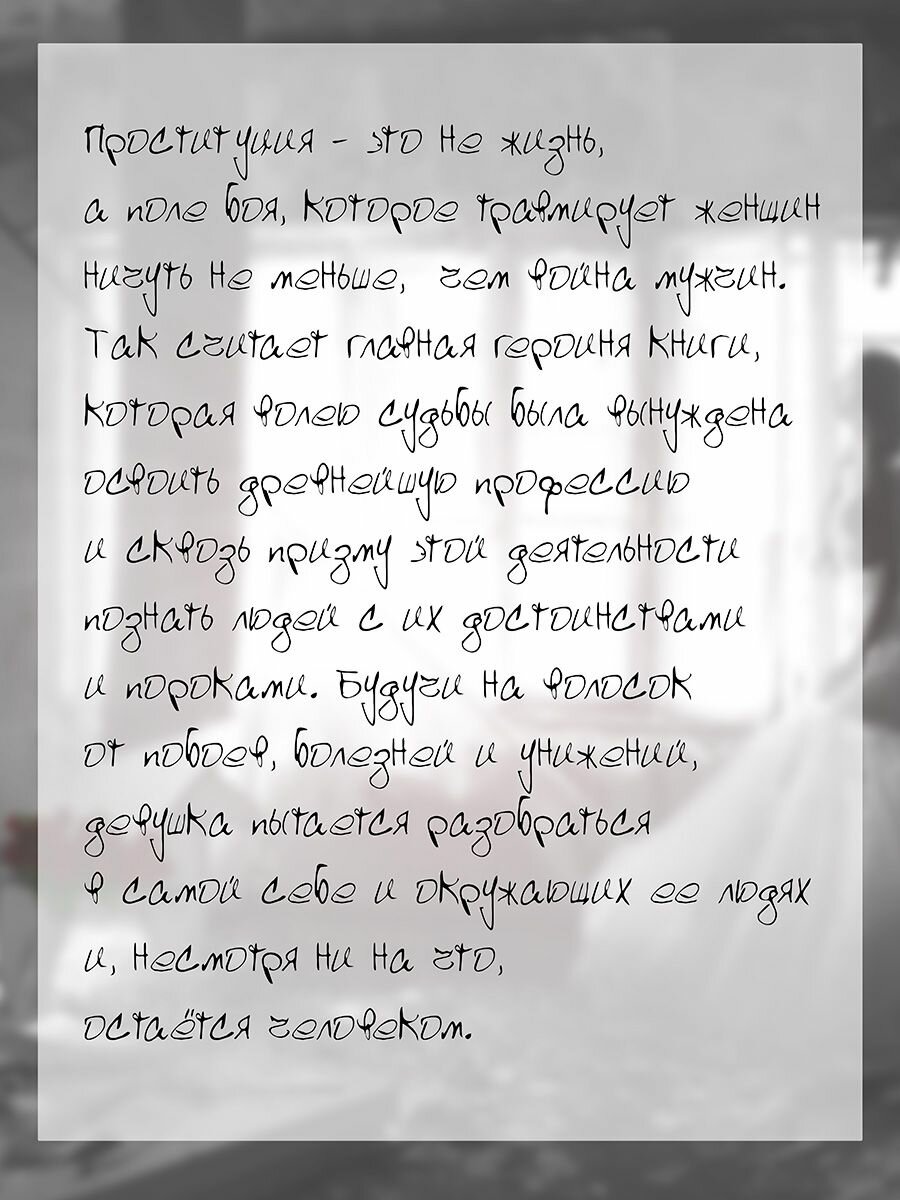 Проституция - это не жизнь,
а поле боя, которое травмирует женщин
ничуть не меньше, чем война мужчин.
Так считает главная героиня книги,
которая волею судьбы была вынуждена
освоить древнейшую профессию
и сквозь призму этой деятельности
познать людей с их достоинствами
и пороками. Будучи на волосок
от побоев, болезней и унижений,
девушка пытается разобраться
в самой себе и окружающих ее людях
и, несмотря ни на что,
остаётся человеком.